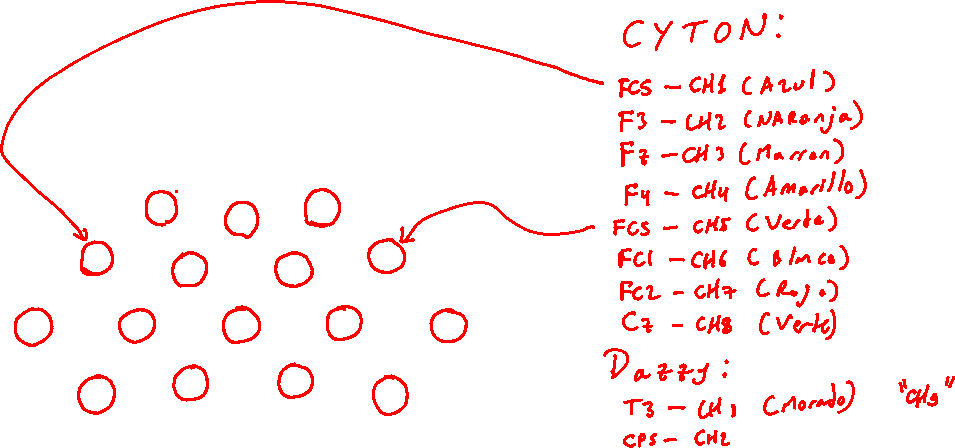 CYTON:
FC5 - CH1 (Azul)
F3 - CH2 (NARanja)
Fz - CH3 (Marron)
F4 - CH4 (Amarillo)
FC5 - CH5 (Verde)
FC1 - CH6 (Blnco)
FC2 - CH7 (Rojo)
Cz - CH8 (Verte)
Dazzy:
T3 - CH1 (Morado) "CH9"
CP5 - CH2